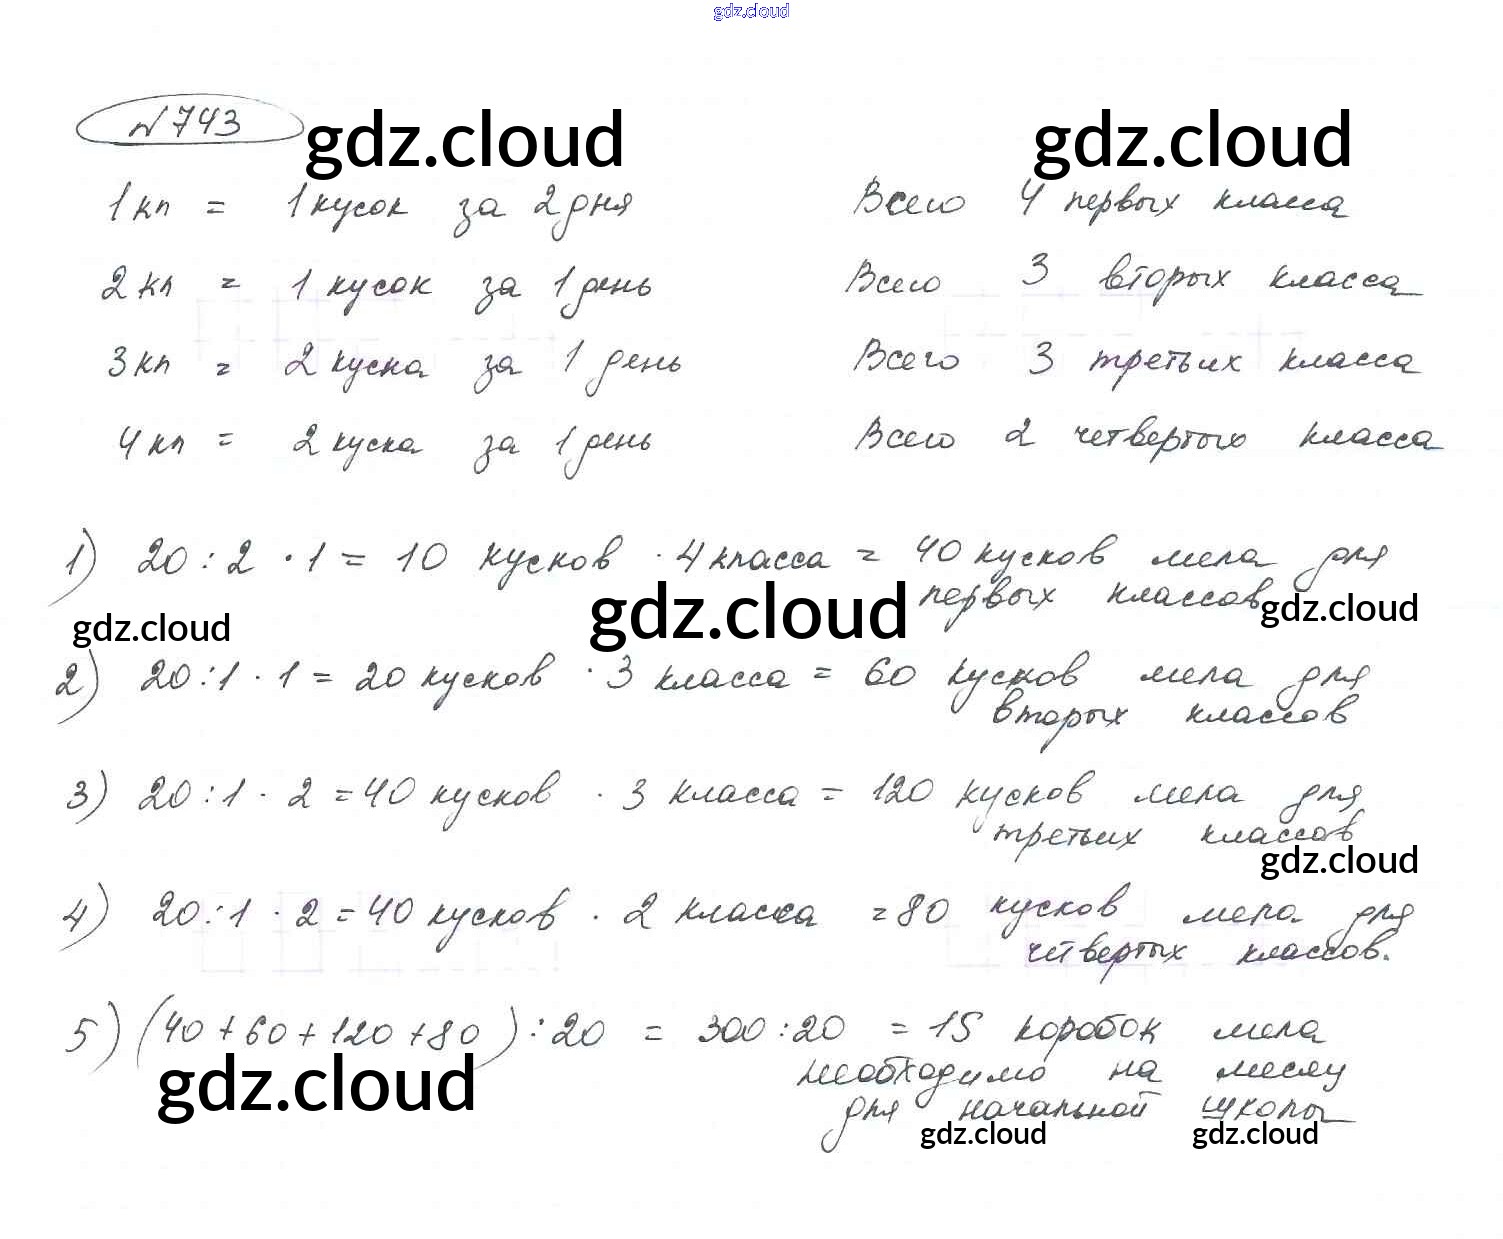 gdz.cloud
№743
gdz.cloud gdz.cloud
1 кл = 1 кусок за 2 дня Всего 4 первых класса
2 кл = 1 кусок за 1 день Всего 3 вторых класса
3 кл = 2 куска за 1 день Всего 3 третьих класса
4 кл = 2 куска за 1 день Всего 2 четвертых класса
1) 20 : 2 · 1 = 10 кусков · 4 класса = 40 кусков мела для
первых классов
gdz.cloud gdz.cloud gdz.cloud
2) 20 : 1 · 1 = 20 кусков · 3 класса = 60 кусков мела для
вторых классов
3) 20 : 1 · 2 = 40 кусков · 3 класса = 120 кусков мела для
третьих классов
gdz.cloud
4) 20 : 1 · 2 = 40 кусков · 2 класса = 80 кусков мела для
четвертых классов.
5) (40 + 60 + 120 + 80) : 20 = 300 : 20 = 15 коробок мела
необходимо на месяц
gdz.cloud
для начальной школы
gdz.cloud gdz.cloud